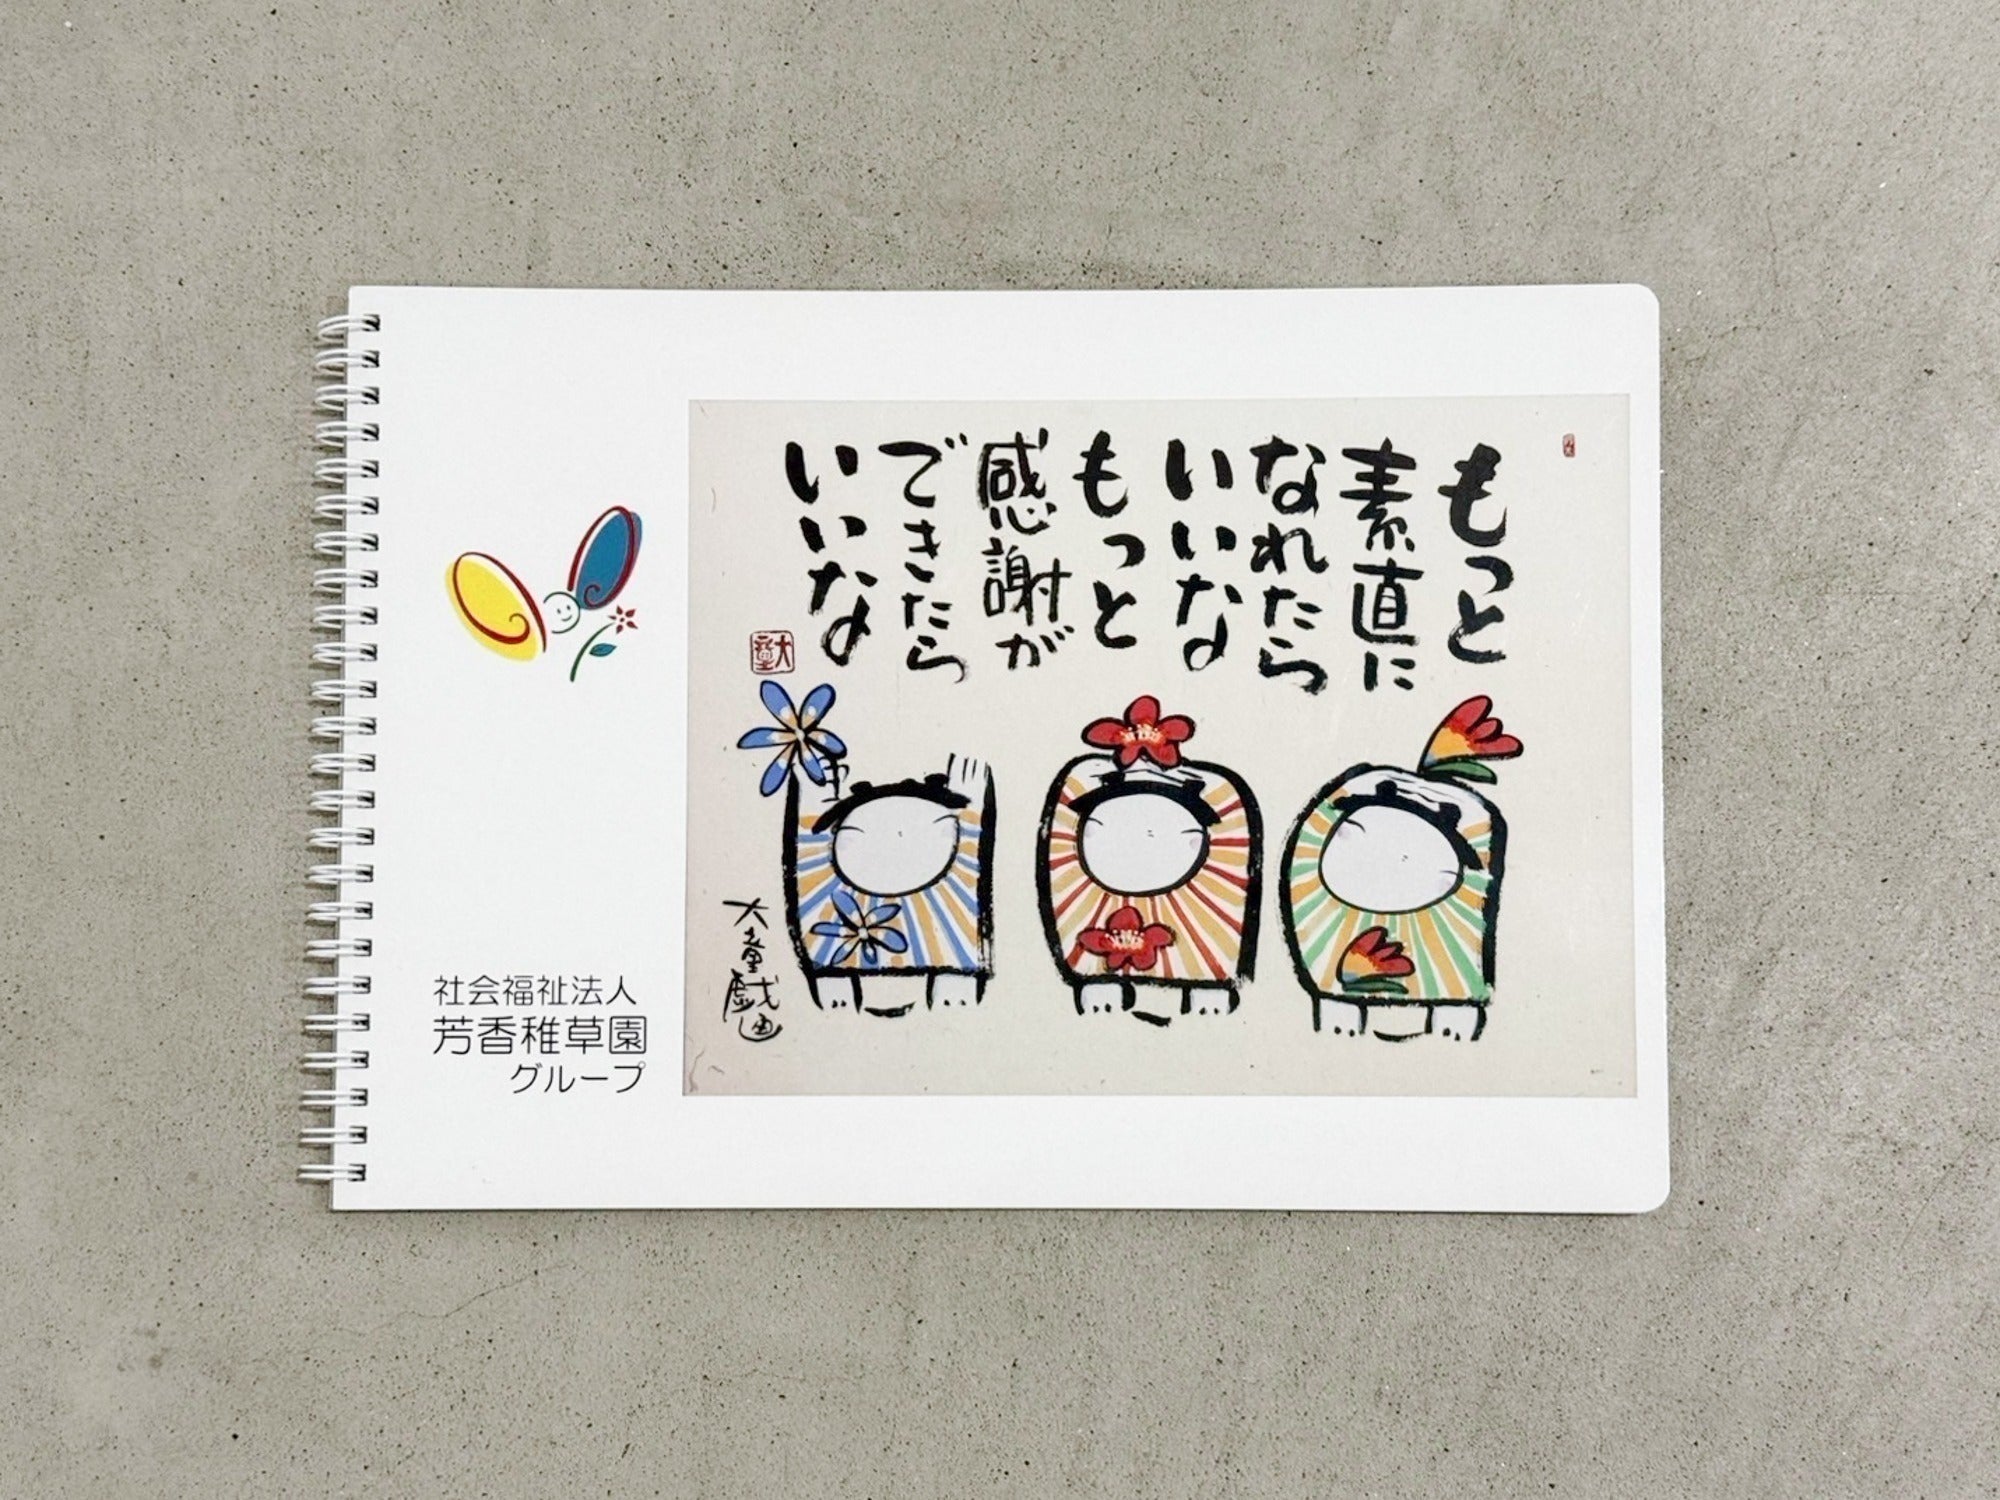 もっと
素直に
なれたら
いいな
もっと
感謝が
できたら
いいな
大童
大童戯画
社会福祉法人
芳香稚草園
グループ